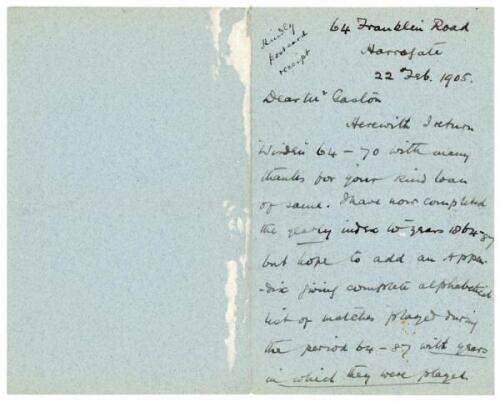 Kindly
postcard
receipt
64 Franklin Road
Harrogate
22 Feb. 1905.
Dear Mr Gaston
Herewith I return
Wisden 64 - 70 with many
thanks for your kind loan
of same. I have now completed
the yearly index to years 1864-87
but hope to add an Appen-
-dix giving complete alphabetical
list of matches played during
the period 64-87 with years
in which they were played.